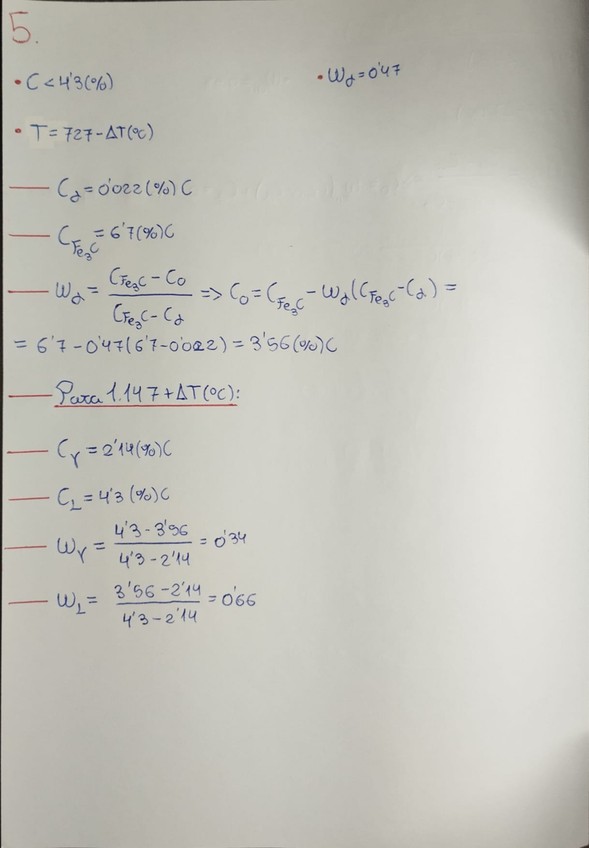 5.
• C < 4'3(%)
• Wα = 0'47
• T = 727 - ΔT(ºC)
— Cα = 0'022(%)C
— CFe₃C = 6'7(%)C
— Wα = (CFe₃C - C₀)/(CFe₃C - Cα) => C₀ = CFe₃C - Wα(CFe₃C - Cα) =
= 6'7 - 0'47(6'7 - 0'022) = 3'56(%)C
— Para 1.147 + ΔT(ºC):
— Cγ = 2'14(%)C
— CL = 4'3(%)C
— Wγ = (4'3 - 3'56)/(4'3 - 2'14) = 0'34
— WL = (3'56 - 2'14)/(4'3 - 2'14) = 0'66